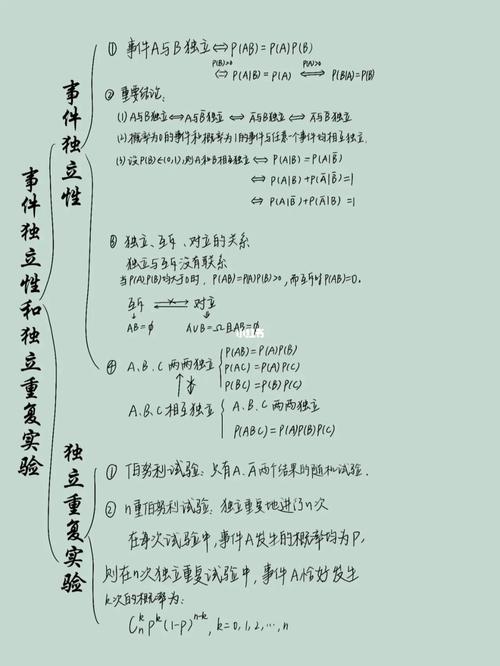 事件独立性和独立重复实验
事件独立性
① 事件A与B独立 ⟺ P(AB)=P(A)P(B)
P(B)>0 ⟺ P(A|B)=P(A) P(A)>0 ⟺ P(B|A)=P(B)
② 重要结论:
(1) A与B独立 ⟺ A与B̅独立 ⟺ A̅与B独立 ⟺ A̅与B̅独立
(2) 概率为0的事件和概率为1的事件与任意一个事件均相互独立.
(3) 设P(B)∈(0,1),则A和B相互独立 ⟺ P(A|B)=P(A|B̅)
⟺ P(A|B)+P(A̅|B̅)=1
⟺ P(A|B̅)+P(A̅|B)=1
③ 独立、互斥、对立的关系
独立与互斥没有联系
当P(A)P(B)均大于0时, P(AB)=P(A)P(B)>0,而互斥时P(AB)=0.
互斥 对立
AB=ϕ A∪B=Ω且AB=ϕ
小红书
④ A、B、C 两两独立 { P(AB)=P(A)P(B)
P(AC)=P(A)P(C)
P(BC)=P(B)P(C)
A、B、C 相互独立 { A、B、C 两两独立
P(ABC)=P(A)P(B)P(C)
独立重复实验
① 伯努利试验: 只有A、A̅两个结果的随机试验.
② n重伯努利试验: 独立重复地进行n次
在每次试验中,事件A发生的概率均为P,
则在n次独立重复试验中,事件A恰好发生
k次的概率为:
Cₙᵏ pᵏ(1-p)ⁿ⁻ᵏ, k=0,1,2,…,n